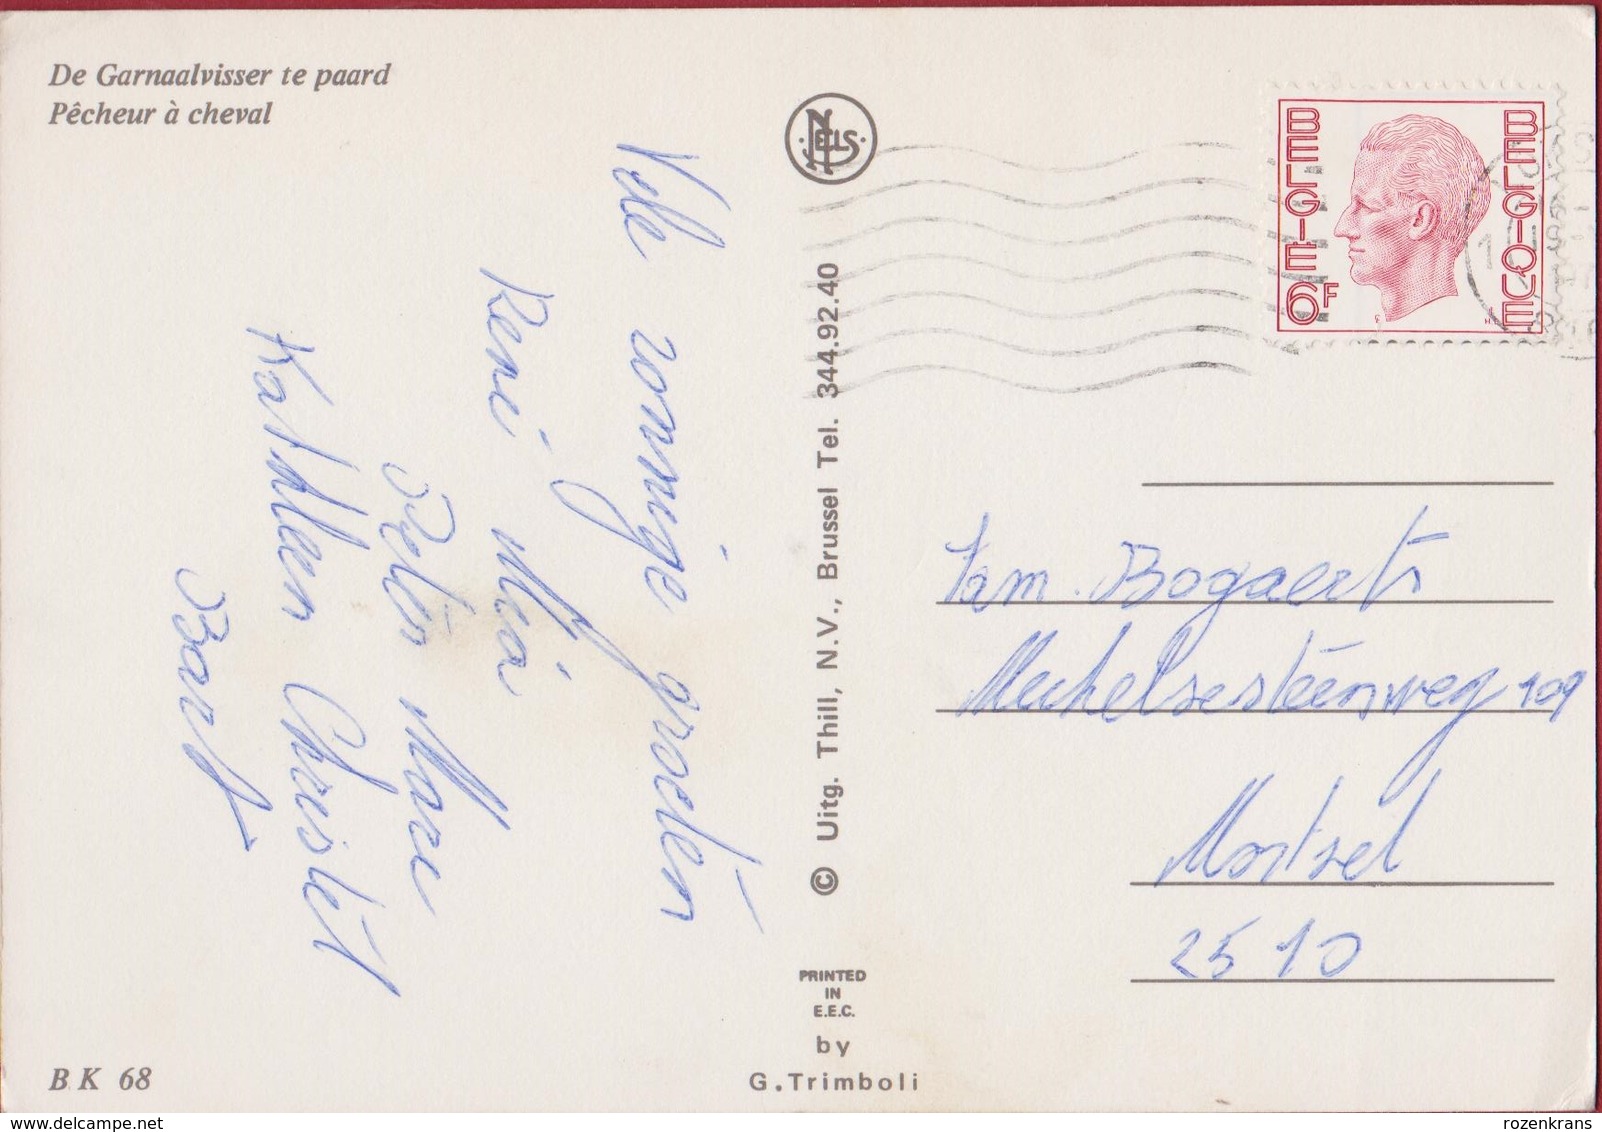 De Garnaalvisser te paard
Pêcheur à cheval
NELS
BELGIE
BELGIQUE
6F
Vele zonnige groeten
René Mia
Peter Marc
Kathleen Christel
Bart
© Uitg. Thill, N.V., Brussel Tel. 344.92.40
Fam. Bogaerts
Mechelsesteenweg 109
Mortsel
2510
PRINTED
IN
E.E.C.
by
G.Trimboli
B K 68
delcampe.net
rozenkrans